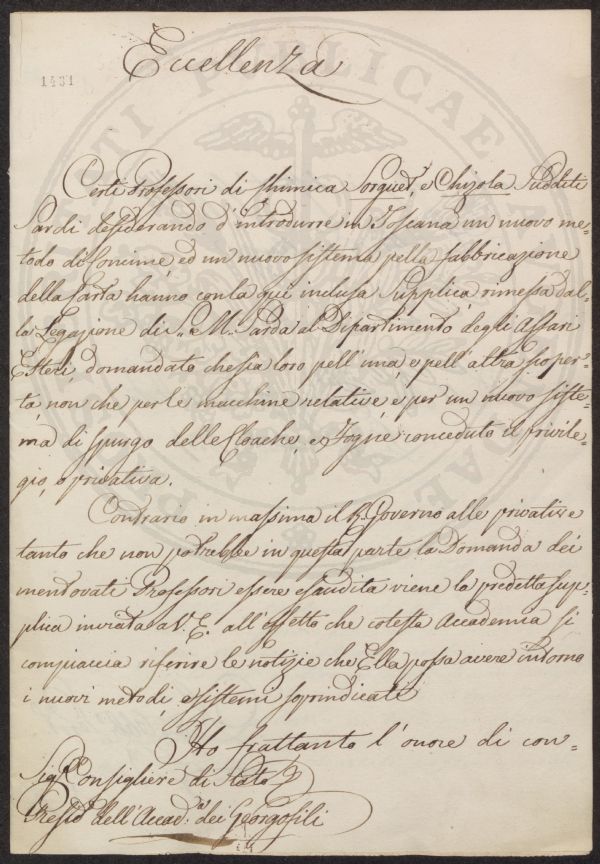 Eccellenza
1431
Certi Professori di Chimica Sorguet, e Chizola Sudditi
Sardi desiderando d'introdurre in Toscana un nuovo me=
todo di Concime ed un nuovo sistema pella fabbricazione
della Carta hanno con la qui inclusa Supplica, rimessa dal=
la Legazione di S. M. Sarda al Dipartimento degli Affari
Esteri, domandato che sia loro pell'una, e pell'altra scoper=
ta, non che per le macchine relative e per un nuovo siste=
ma di spurgo delle Cloache, e Fogne conceduto il privile=
gio, o privativa.
Contrario in massima il R. Governo alle privative
tanto che non potrebbe in questa parte la Domanda dei
mentovati Professori essere esaudita viene la predetta sup=
plica inviata a V. E. all'effetto che cotesta Accademia si
compiaccia riferire le notizie che Ella possa avere intorno
i nuovi metodi, e sistemi soprindicati
Ho frattanto l'onore di con=
Sig.r Consigliere di Stato
Presid. dell'Accad. dei Georgofili